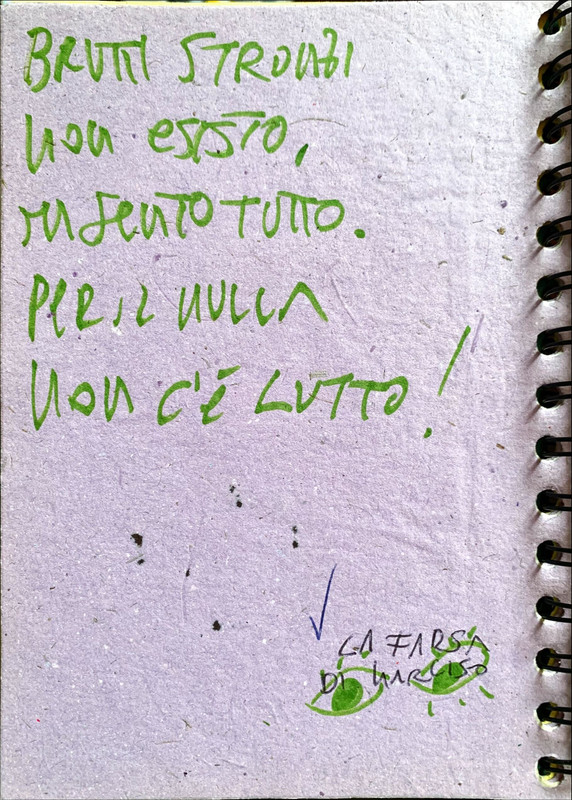 BRUTTI STRONZI
non esisto,
ma sento TUTTO.
PER IL NULLA
NON C'È LUTTO!
LA FARSA
DI NARCISO